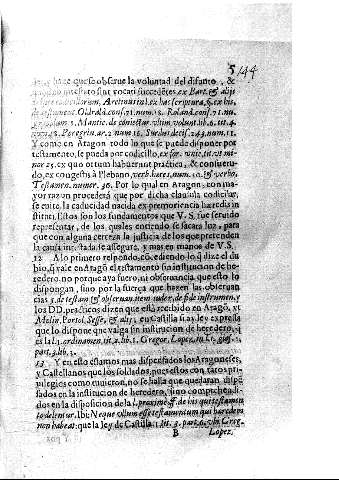 5 144
haze que se obserue la voluntad del difunto, &
sint vocati succedẽtes, ex Bart. & alijs
Aretino in l. ex hac scriptura, ff. ex his,
de testament. Oldrald. conf. 71. num. 12. Roland. conf. 71. nu.
Mantic. de coniectur. vltim. volunt. lib. 6. tit. 4.
Peregrin. ar. 2. num. 16. Surdus decis. 243. num. 11.
Y como en Aragon todo lo que se puede disponer por
testamento, se pueda por codicillo, ex for. vnic. tit. vt mi
nor 25. ex quo ortum habuerunt practica, & consuetu
do, ex congestis à Plebano, verb. hæres, num. 10. & verbo,
Testamen. numer. 36. Por lo qual en Aragon, con ma
yor razon procederà que por dicha clausula codicilar,
se euite la caducidad nacida ex præmorientia hæredis in
stituti. Estos son los fundamentos que V. S. fue seruido
representar, de los quales entiendo se sacarà luz, para
que con alguna certeza la justicia de los que pretenden
la causa intestada se assegure, y mas en manos de V. S.
12 A lo primero respondo, cõcediendo lo q̃ dize el du
bio, q̃ vale en Aragõ el testamento sin institucion de he-
redero, no porque aya fuero, ni obseruancia que esto lo
dispongan, sino por la fuerça que hazen las obseruan
cias 3. de testam. & obseruan. item iudex, de fide instrumen. y
los DD. practicos dizen que està recibido en Aragõ, vt
Molin. Portol. Sesse, & alij; en Castilla si ay ley expressa
que lo dispone que valga sin institucion de heredero, q̃
es la l. 1. ordinamen. tit. 2. lib. 5. Gregor. Lopez, in l. 1. glos. 1.
part. 3. lib. 3.
13 Y en esto estamos mas disputados los Aragoneses,
y Castellanos que los soldados, pues estos con raros pri-
uilegios como tuuieron, no se halla que quedaran dispẽ
sados en la institucion de heredero, sino comprehendi-
dos en la disposicion de la l. proxime ff. de his quæ in testamen
to delentur. Ibi: Neque ullum esse testamentum qui hæredem
non habeat; que la ley de Castilla 1. tit. 3. part. 6. vbi Greg.
B Lopez,